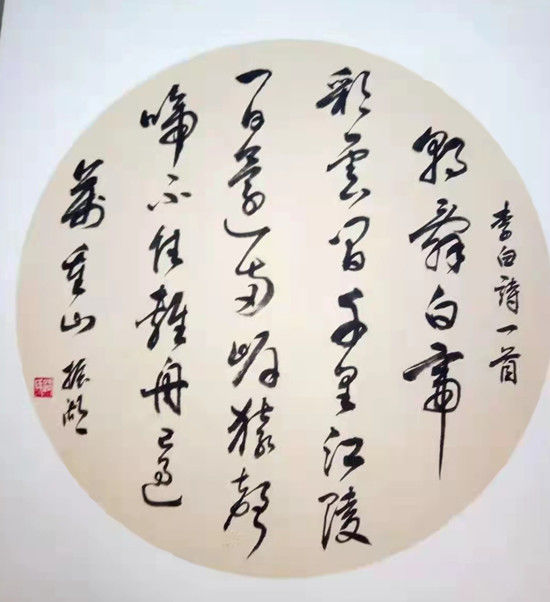 李白詩一首
朝辭白帝
彩雲間千里江陵
一日還兩岸猿聲
啼不住輕舟已過
萬重山 振湖